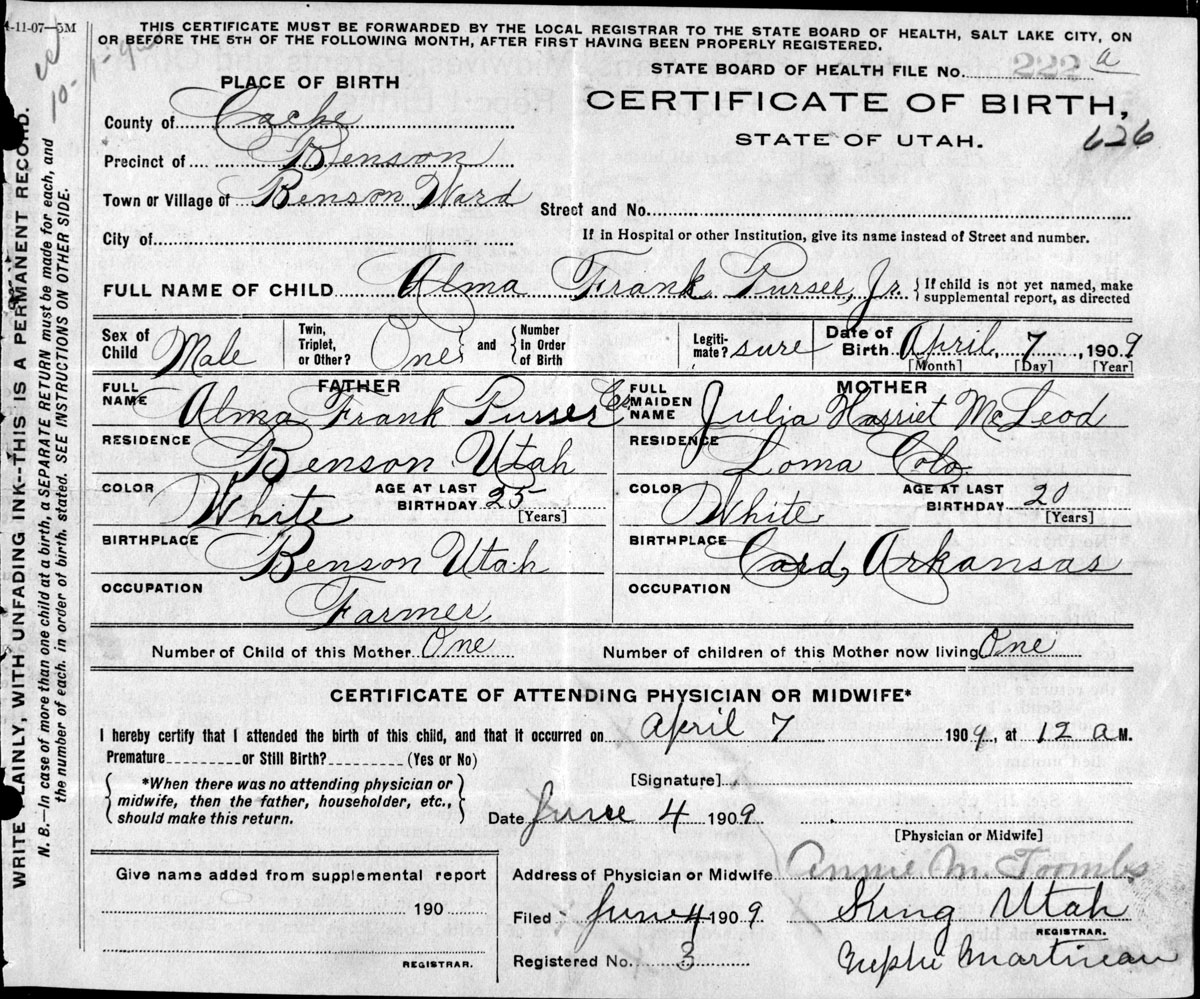 4-11-07—5M
THIS CERTIFICATE MUST BE FORWARDED BY THE LOCAL REGISTRAR TO THE STATE BOARD OF HEALTH, SALT LAKE CITY, ON
OR BEFORE THE 5TH OF THE FOLLOWING MONTH, AFTER FIRST HAVING BEEN PROPERLY REGISTERED.
STATE BOARD OF HEALTH FILE No. 222 a
PLACE OF BIRTH
CERTIFICATE OF BIRTH,
STATE OF UTAH.
626
County of Cache
Precinct of Benson
Town or Village of Benson Ward
Street and No.
City of
If in Hospital or other Institution, give its name instead of Street and number.
FULL NAME OF CHILD Alma Frank Purser, Jr. { If child is not yet named, make
supplemental report, as directed
Sex of Child Male Twin, Triplet, or Other? One and { Number In Order of Birth Legiti-mate? sure Date of Birth April 7, 1909
[Month] [Day] [Year]
FATHER MOTHER
FULL NAME Alma Frank Purser FULL MAIDEN NAME Julia Harriet McLeod
RESIDENCE Benson Utah RESIDENCE Loma Colo
COLOR White AGE AT LAST BIRTHDAY 25 [Years] COLOR White AGE AT LAST BIRTHDAY 20 [Years]
BIRTHPLACE Benson Utah BIRTHPLACE Cord, Arkansas
OCCUPATION Farmer OCCUPATION
Number of Child of this Mother One Number of children of this Mother now living One
CERTIFICATE OF ATTENDING PHYSICIAN OR MIDWIFE*
I hereby certify that I attended the birth of this child, and that it occurred on April 7 1909, at 12 a M.
Premature or Still Birth? (Yes or No)
{ *When there was no attending physician or
midwife, then the father, householder, etc.,
should make this return. }
[Signature]
Date June 4 1909
[Physician or Midwife]
Give name added from supplemental report
190
REGISTRAR.
Address of Physician or Midwife Annie M. Toombs
Filed June 4 1909 King Utah
REGISTRAR.
Registered No. 3 Martineau
WRITE PLAINLY, WITH UNFADING INK--THIS IS A PERMANENT RECORD.
N. B.—In case of more than one child at a birth, a SEPARATE RETURN must be made for each, and
the number of each in order of birth stated. SEE INSTRUCTIONS ON OTHER SIDE.